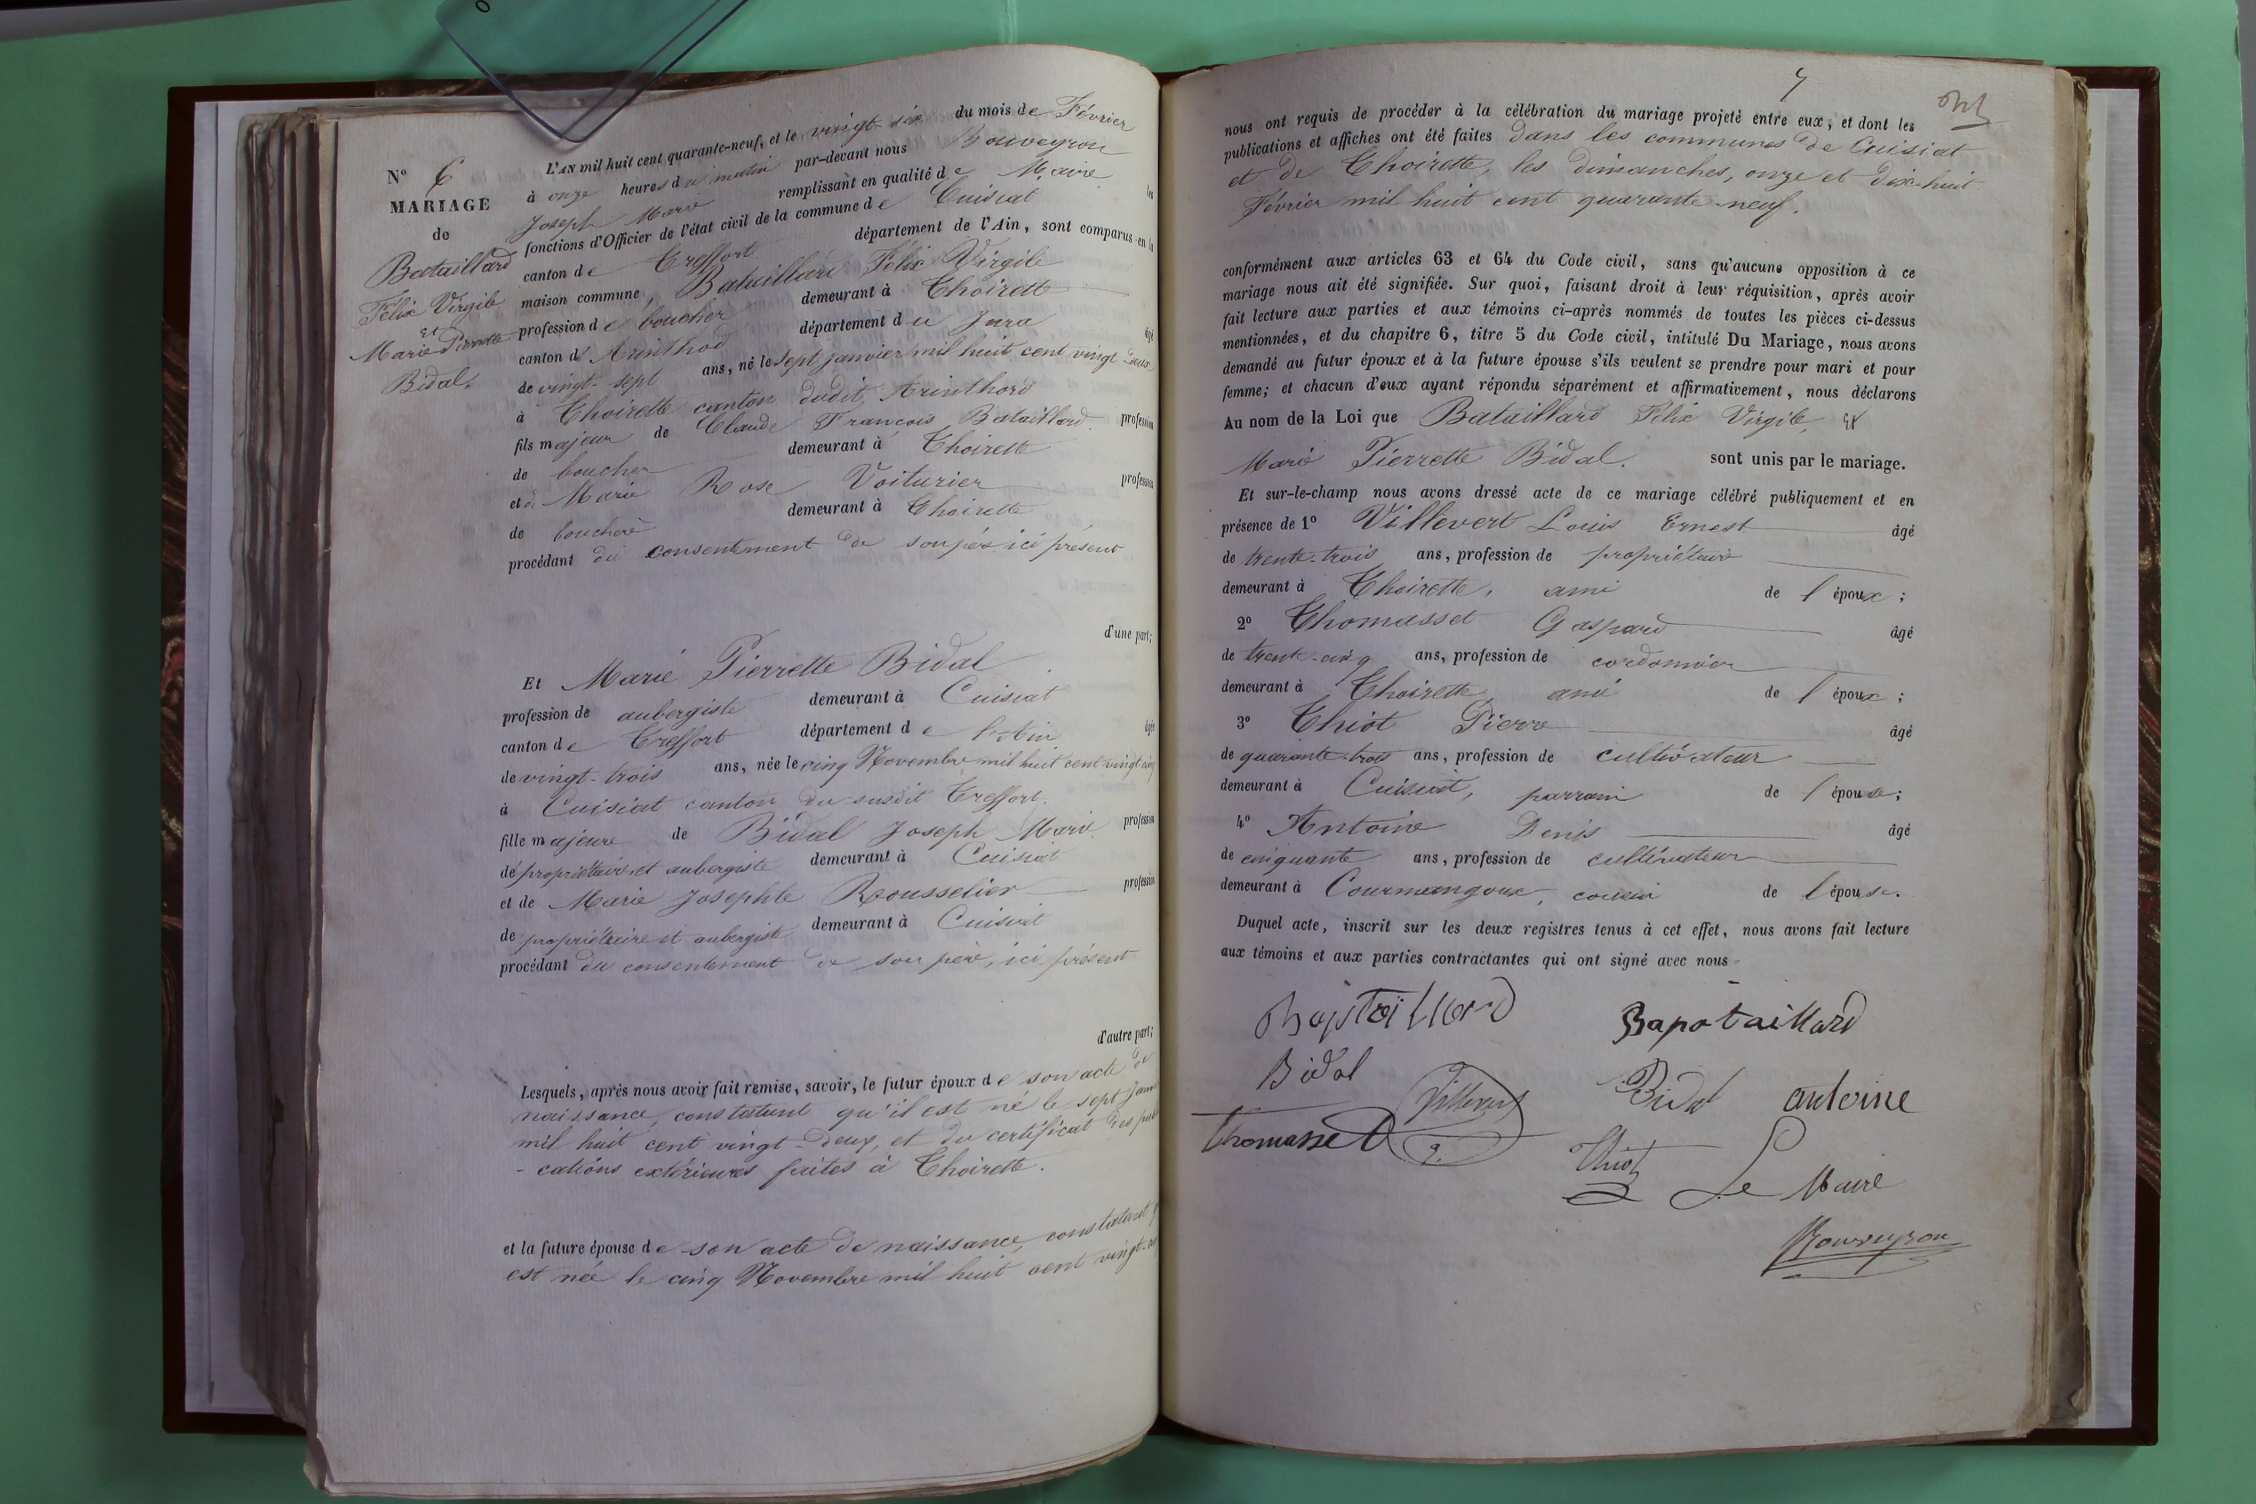 N° 6
MARIAGE
de
Bataillard
Félix Virgile
et
Marie Pierrette
Bidal.
L'AN mil huit cent quarante-neuf, et le vingt six du mois de Février
à onze heures du matin par-devant nous Bouveyron
Joseph Marie remplissant en qualité de Maire les
fonctions d'Officier de l'état civil de la commune de Cuisiat
canton de Treffort département de l'Ain, sont comparus en la
maison commune, Bataillard Félix Virgile
profession de boucher demeurant à Thoirette
canton d'Arinthod département du Jura âgé
de vingt-sept ans, né le sept janvier mil huit cent vingt deux
à Thoirette canton dudit Arinthord
fils majeur de Claude François Bataillard profession
de boucher demeurant à Thoirette
et de Marie Rose Voiturier profession
de bouchère demeurant à Thoirette
procédant du consentement de son père ici présent
d'une part;
Et Marie Pierrette Bidal
profession de aubergiste demeurant à Cuisiat
canton de Treffort département de l'Ain âgée
de vingt-trois ans, née le cinq Novembre mil huit cent vingt cinq
à Cuisiat canton du susdit Treffort.
fille majeure de Bidal Joseph Marie profession
de propriétaire et aubergiste demeurant à Cuisiat
et de Marie Josephte Rousselier profession
de propriétaire et aubergiste demeurant à Cuisiat
procédant du consentement de son père, ici présent
d'autre part;
Lesquels, après nous avoir fait remise, savoir, le futur époux de son acte de
naissance, constatant qu'il est né le sept Jan
mil huit cent vingt deux, et du certificat des pub
- cations extérieures faites à Thoirette.
et la future épouse de son acte de naissance, constatant q
est née le cinq Novembre mil huit cent vingt-c
7
nous ont requis de procéder à la célébration du mariage projeté entre eux, et dont les
publications et affiches ont été faites dans les communes de Cuisiat
et de Thoirette, les dimanches, onze et dix-huit
Février mil huit cent quarante-neuf.
conformément aux articles 63 et 64 du Code civil, sans qu'aucune opposition à ce
mariage nous ait été signifiée. Sur quoi, faisant droit à leur réquisition, après avoir
fait lecture aux parties et aux témoins ci-après nommés de toutes les pièces ci-dessus
mentionnées, et du chapitre 6, titre 5 du Code civil, intitulé Du Mariage, nous avons
demandé au futur époux et à la future épouse s'ils veulent se prendre pour mari et pour
femme; et chacun d'eux ayant répondu séparément et affirmativement, nous déclarons
Au nom de la Loi que Bataillard Félix Virgile, et
Marie Pierrette Bidal. sont unis par le mariage.
Et sur-le-champ nous avons dressé acte de ce mariage célébré publiquement et en
présence de 1° Villevert Louis Ernest âgé
de trente-trois ans, profession de propriétaire
demeurant à Thoirette, ami de l'époux;
2° Thomasset Gaspard âgé
de trente-cinq ans, profession de cordonnier
demeurant à Thoirette, ami de l'époux;
3° Thiot Pierre âgé
de quarante-trois ans, profession de cultivateur
demeurant à Cuisiat, parrain de l'épouse;
4° Antoine Denis âgé
de cinquante ans, profession de cultivateur
demeurant à Courmangoux, cousin de l'épouse.
Duquel acte, inscrit sur les deux registres tenus à cet effet, nous avons fait lecture
aux témoins et aux parties contractantes qui ont signé avec nous
Bapataillard
Bidal Villevert Bidal antoine
Thomasset
Thiot Le Maire
Bouveyron